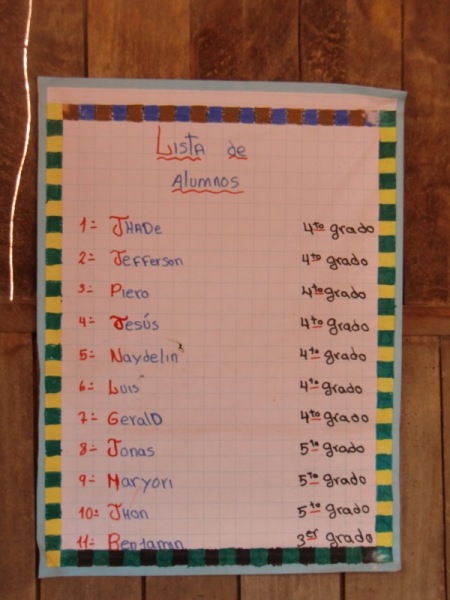 Lista de
Alumnos
1= JHADe 4to grado
2= Jefferson 4to grado
3= Piero 4to grado
4= Jesús 4to grado
5= Naydelin 4to grado
6= Luis 4to grado
7= GeralD 4to grado
8= Jonas 5to grado
9= Maryori 5to grado
10= Jhon 5to grado
11= Benjamin 3er grado